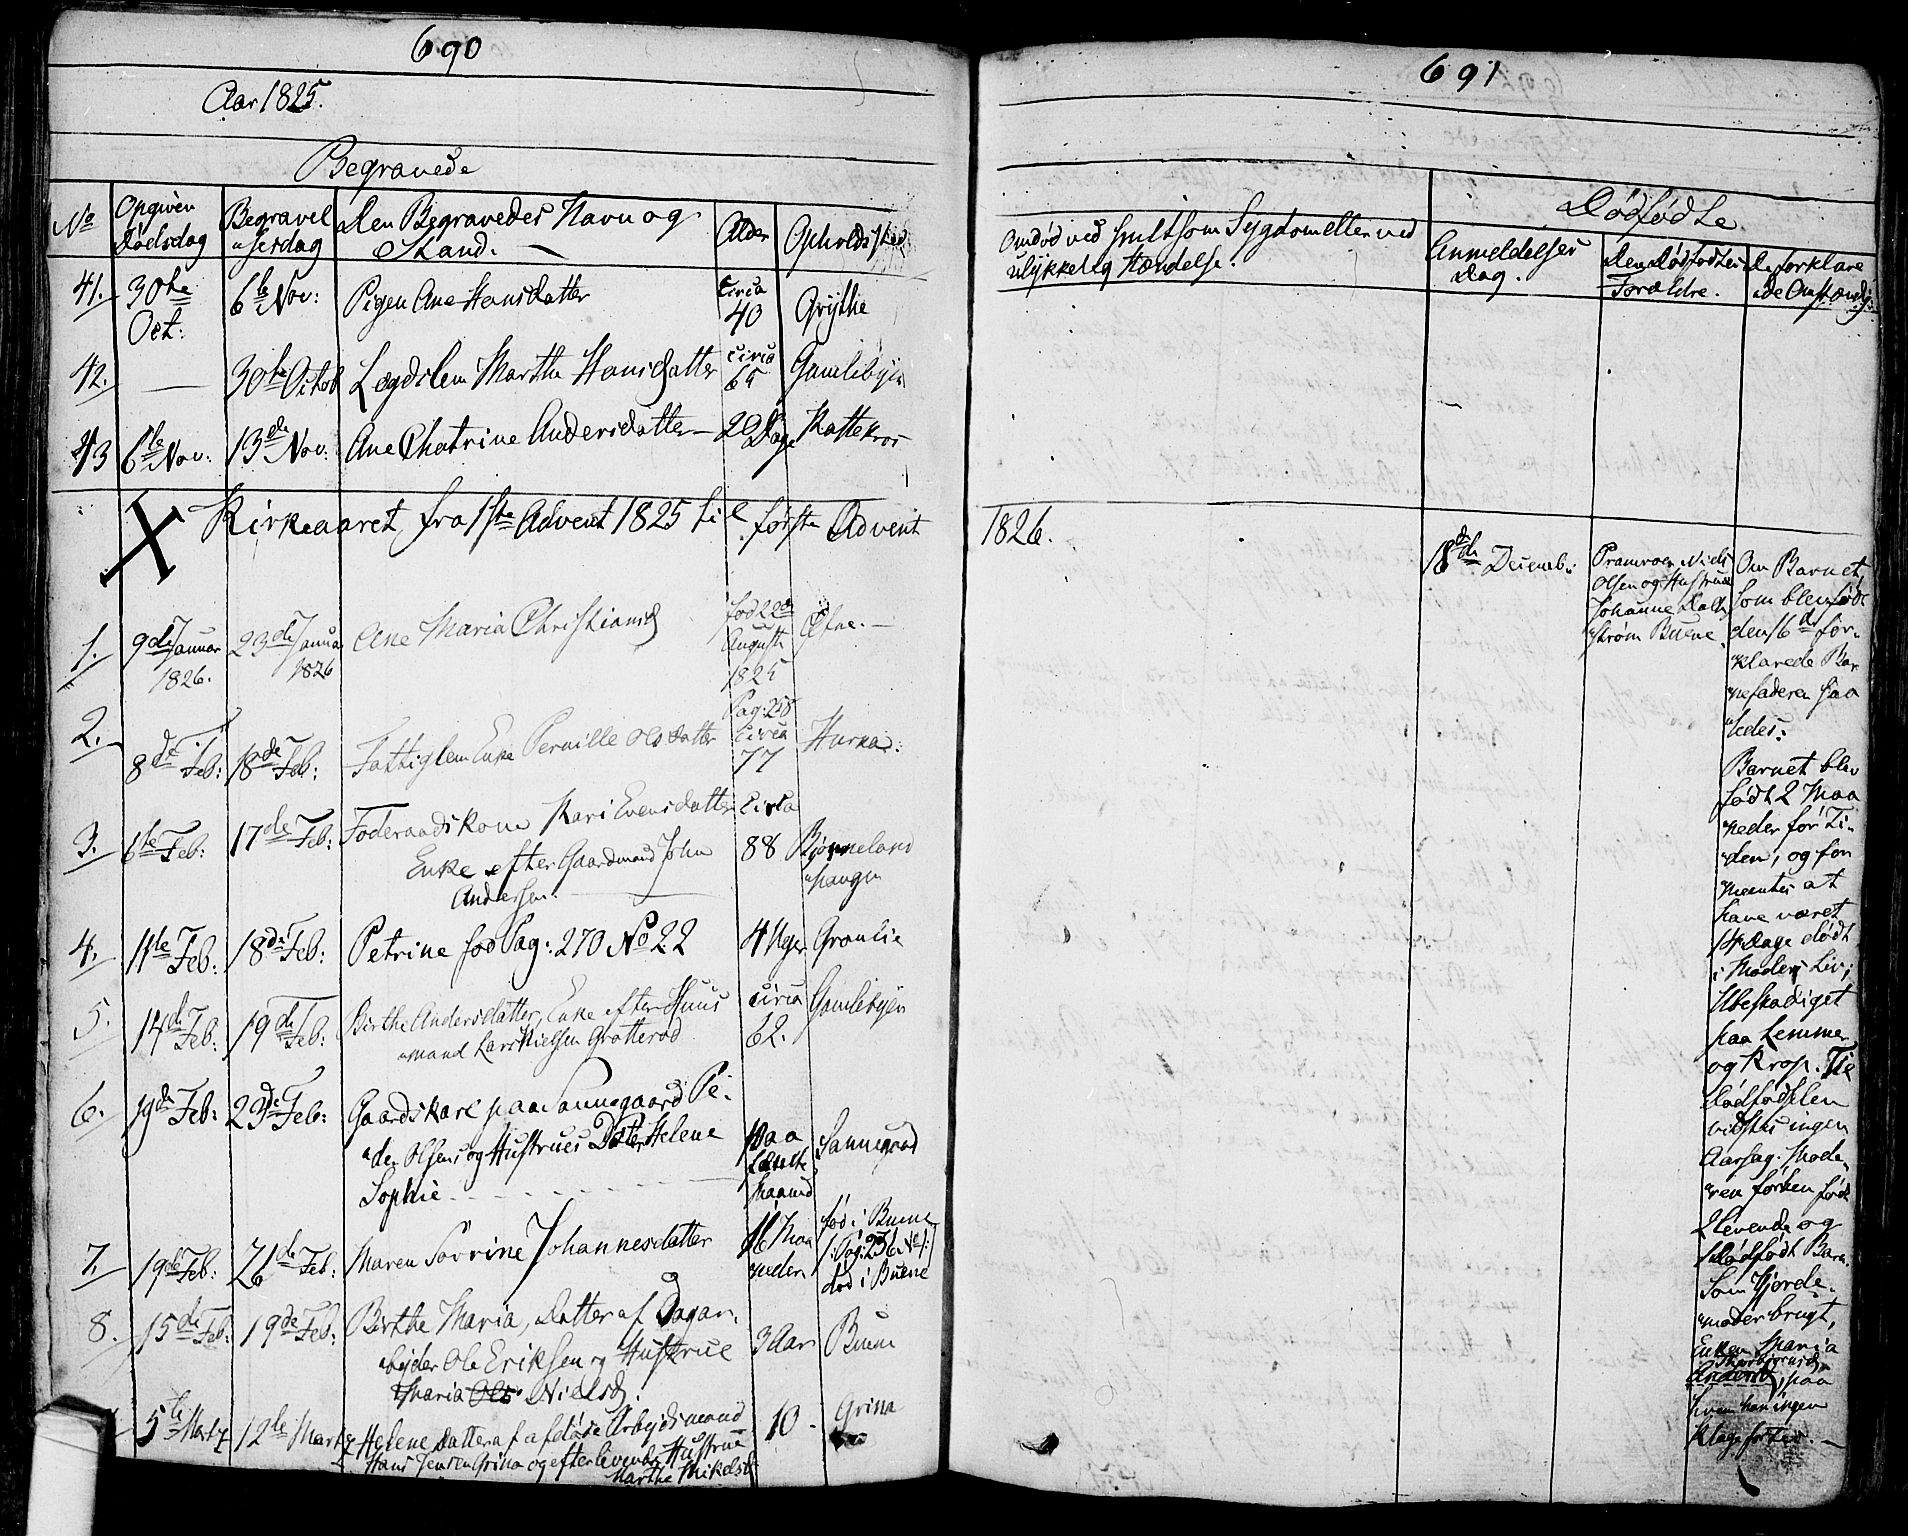 690
Aar 1825.
Begravede
No
Opgiven
Dødsdag
Begravel
sesdag
Den Begravedes Navn og
Stand.
Alder
Opholdssted
41. 30te Oct: 6te Nov: Pigen Ane Hansdatter circa 40 Grythe
42. — 30te Octob Lægdslem Marthe Hansdatter circa 65 Gamlebyen
43 6te Nov: 13de Nov: Ane Chatrine Andersdatter — 20 Dage Kattekros
Kirkeaaret fra 1ste Advent 1825 til første Advent
1. 9de Januar 1826. 23de Janua 1826 Ane Maria Christiansd
fød 22de
August
1825
Pag: 258
2. 8de Feb: 18de Feb: Fattiglem Enke Pernille Olsdatter circa 77
3. 6te Feb: 17de Feb: Føderaadskone Kari Evensdatter circa
Enke efter Gaardmand John 88 Bjørneland
Andersen.
4. 11te Feb: 18de Feb: Petrine fød Pag: 270 No 22 4 Uger Gronlie
5. 14de Feb: 19de Feb: Birthe Andersdatter, Enke efter Huus circa Gamlebyen
mand Lars Nielsen Grotterød 62.
6. 19de Feb: Feb: Gaardskarl paa Sannegaard Pe-
der Olsens og Hustrues Dater Helene paa
Sophie
7. 19de Feb: 26de Feb: Maren Sovrine Johannesdatter 16 Maa
neder
fød i Buene
Pag: 236 No 1:
død i Buene
8. 15de Feb: 19de Feb: Birthe Maria, Datter af Dagar-
bejder Ole Eriksen og Hustrue 3 Aar Buen
Maria Ols Nielsd:
5te Marty 12te Marty Helene, Datter af afdøde Arbejdsmand 10 - Grina
Hans Jensen Grina og efterlevende Hustrue
Marthe Mikelsd
691
Omdød ved smitsom Sygdom eller ved
ulykkelig Hændelse.
Dødfødte
Anmeldelses
Dag.
Den Dødfødtes
Forældre.
De forklare
de Omstændig:
1826.
18de Decemb:
Niels
Olsen og Hustrue
Johanne Dall
strøm Buene
Om Barnet,
som blev født
den 16d for-
klarede Bar
nefaderen saa
ledes:
Barnet blev
født 2 Maa
neder før Ti-
den, og for
mentes at
have været
14 Dage dødt
i Moders Liv;
Ubeskadiget
paa Lemmer
og Krop. Til
Dødfødselen
vidstes ingen
Aarsag. Mode-
ren forhen født
2 levende og
1 Dødfødt Barn.
Som Gjorde-
moder brugt,
Enken Maria
Andersd, paa
hvem han ingen
Klage førte. —